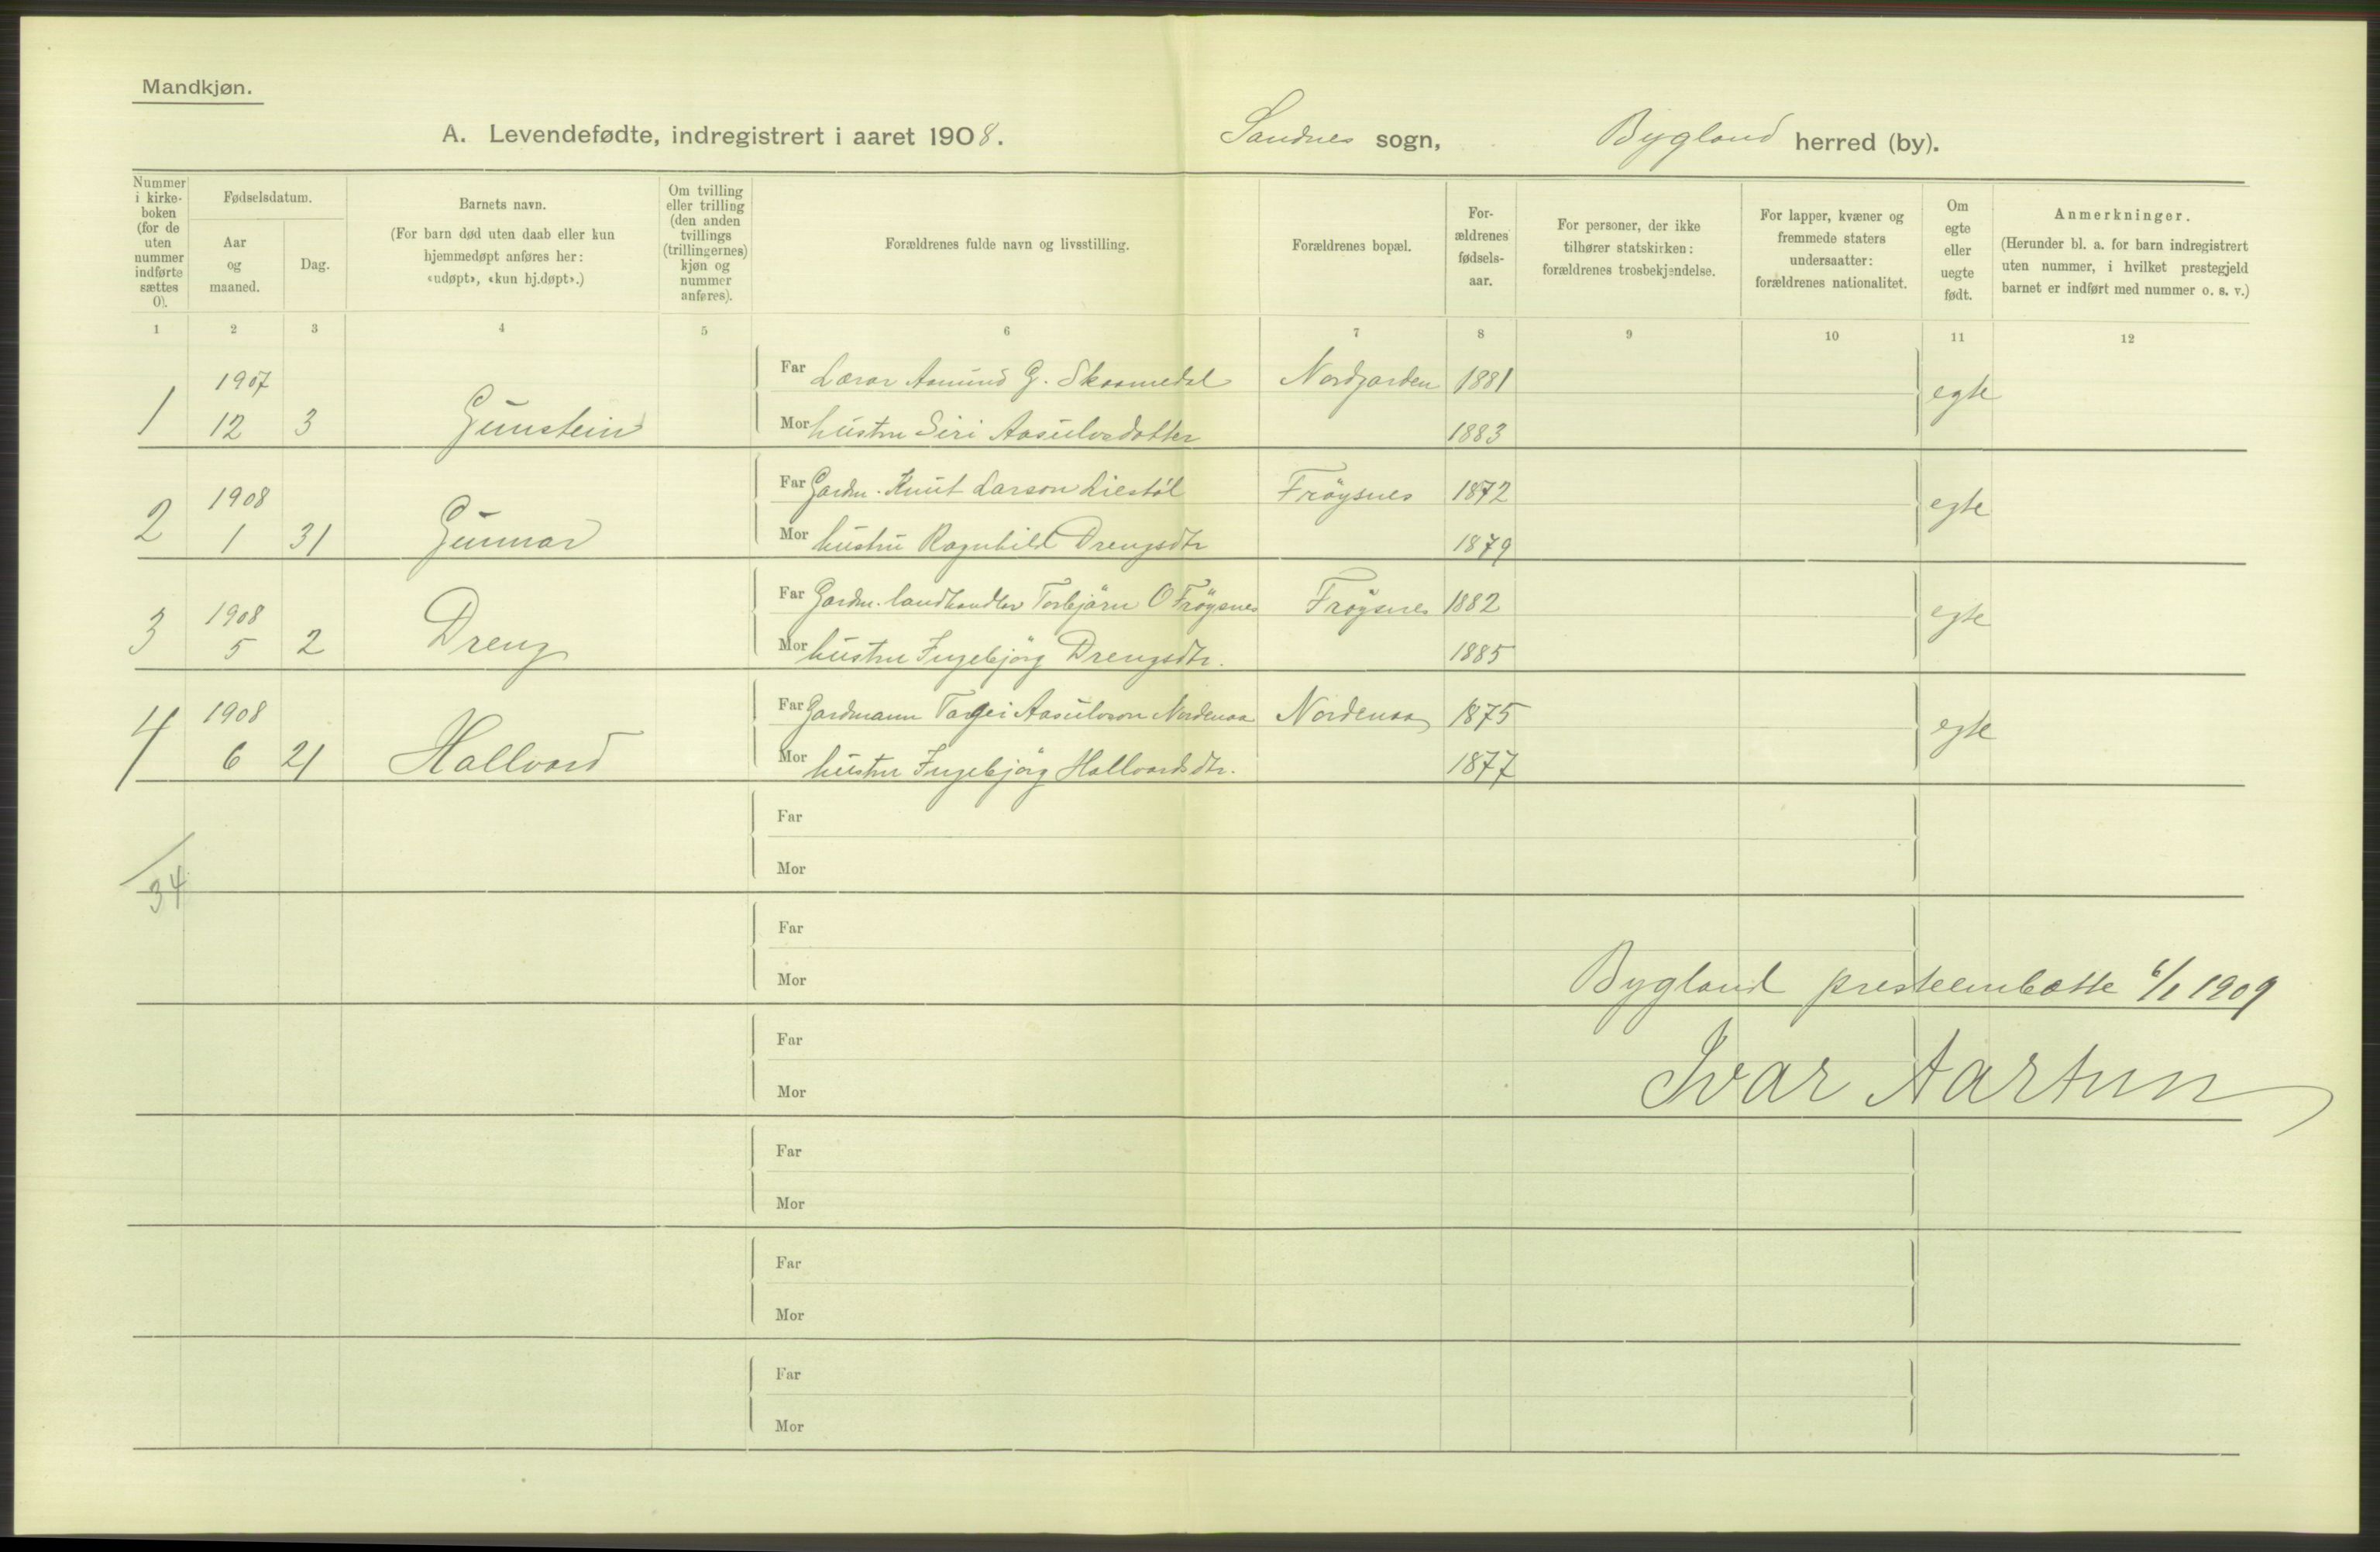 Mandkjøn.
A. Levendefødte, indregistrert i aaret 1908. Sandnes sogn, Bygland herred (by).
Nummer i kirkeboken (for de uten nummer indførte sættes 0).
Fødselsdatum.
Aar og maaned.
Dag.
Barnets navn.
(For barn død uten daab eller kun hjemmedøpt anføres her: «udøpt», «kun hj.døpt».)
Om tvilling eller trilling (den anden tvillings (trillingernes) kjøn og nummer anføres).
Forældrenes fulde navn og livsstilling.
Forældrenes bopæl.
Forældrenes fødselsaar.
For personer, der ikke tilhører statskirken: forældrenes trosbekjendelse.
For lapper, kvæner og fremmede staters undersaatter: forældrenes nationalitet.
Om egte eller uegte født.
Anmerkninger.
(Herunder bl. a. for barn indregistrert uten nummer, i hvilket prestegjeld barnet er indført med nummer o. s. v.)
1 2 3 4 5 6 7 8 9 10 11 12
1907 Far Lærar Aamund G. Skaamedal Nordgarden 1881 egte
1 12 3 Gunstein Mor hustru Siri Aasulvsdotter 1883
1908 Far Gardm. Knut Larson Liestøl Fröysnes 1872 egte
2 1 31 Gunnar Mor hustru Ragnhild Drengsdtr 1879
1908 Far Gardm. landhandlar Torbjörn O Fröysnes Fröysnes 1882 egte
3 5 2 Dreng Mor hustru Ingebjörg Drengsdtr. 1885
1908 Far Gardmann Targei Aasulvson Nordenaa Nordenaa 1875 egte
4 6 21 Hallvard Mor hustru Ingebjörg Hallvardsdtr. 1877
Far
Mor
34
Far
Mor
Bygland presteembætte 6/1 1909
Far
Mor
Ivar Aartun
Far
Mor
Far
Mor
Far
Mor